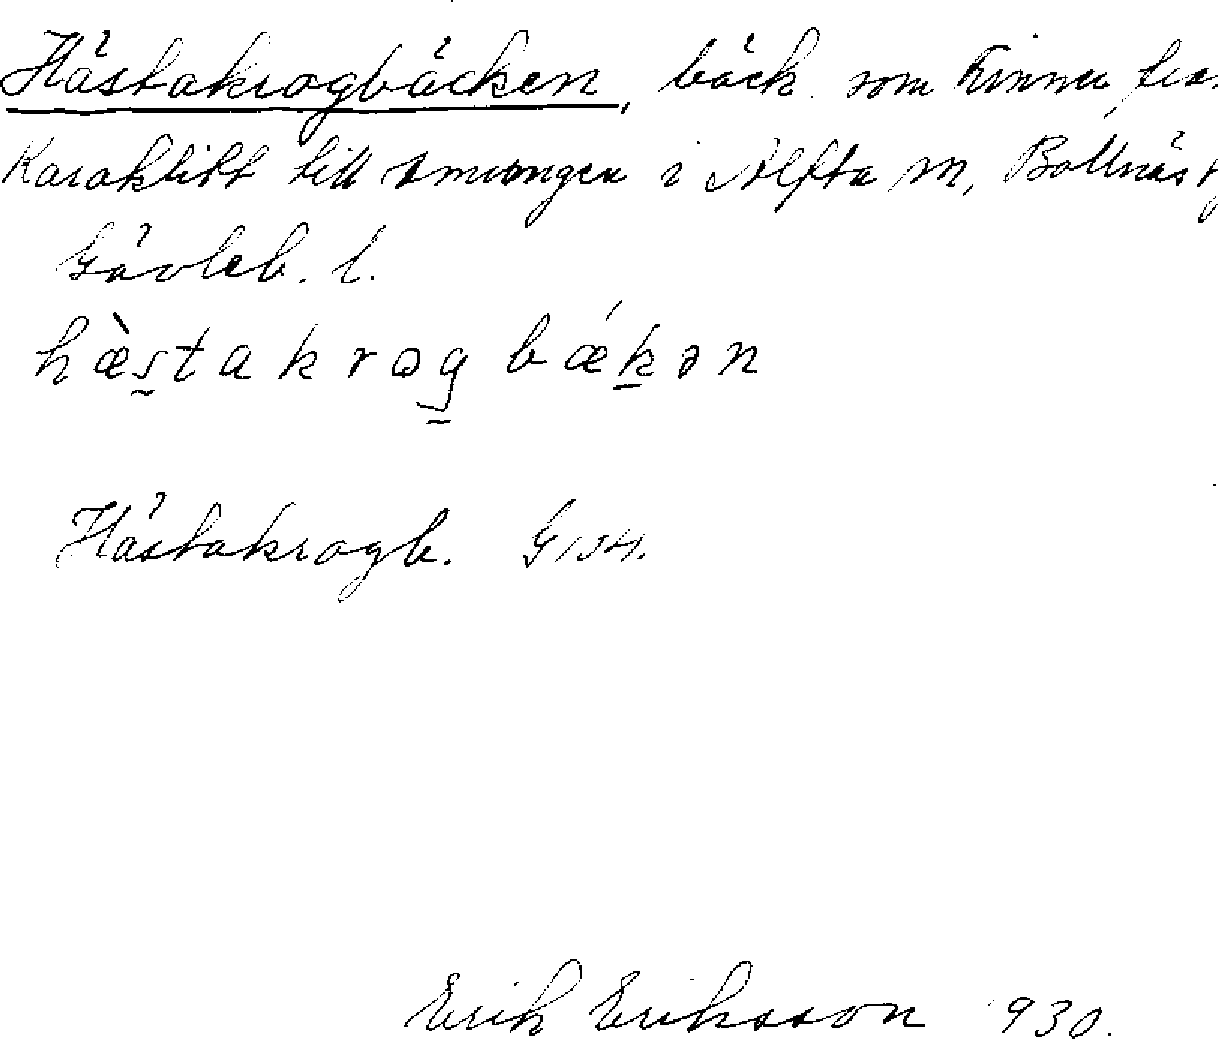 Hästakrogbäcken, bäck som rinner frå
till Amungen i Alfta sn, Bollnäs
Gävleb. l.
hæ̀stakrog bǽkən
Hästakrogb. G 154.
Erik Eriksson 930.